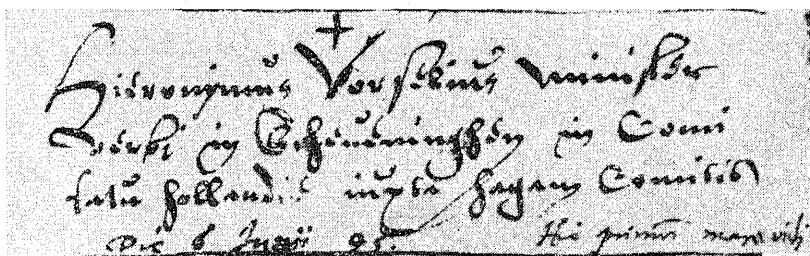 Hieronymus Vorstius minister
verbi in Scheveninghen in Comi
tatu hollandie iuxta hagam Comitis
Die 6 Junii 95. Hic primus